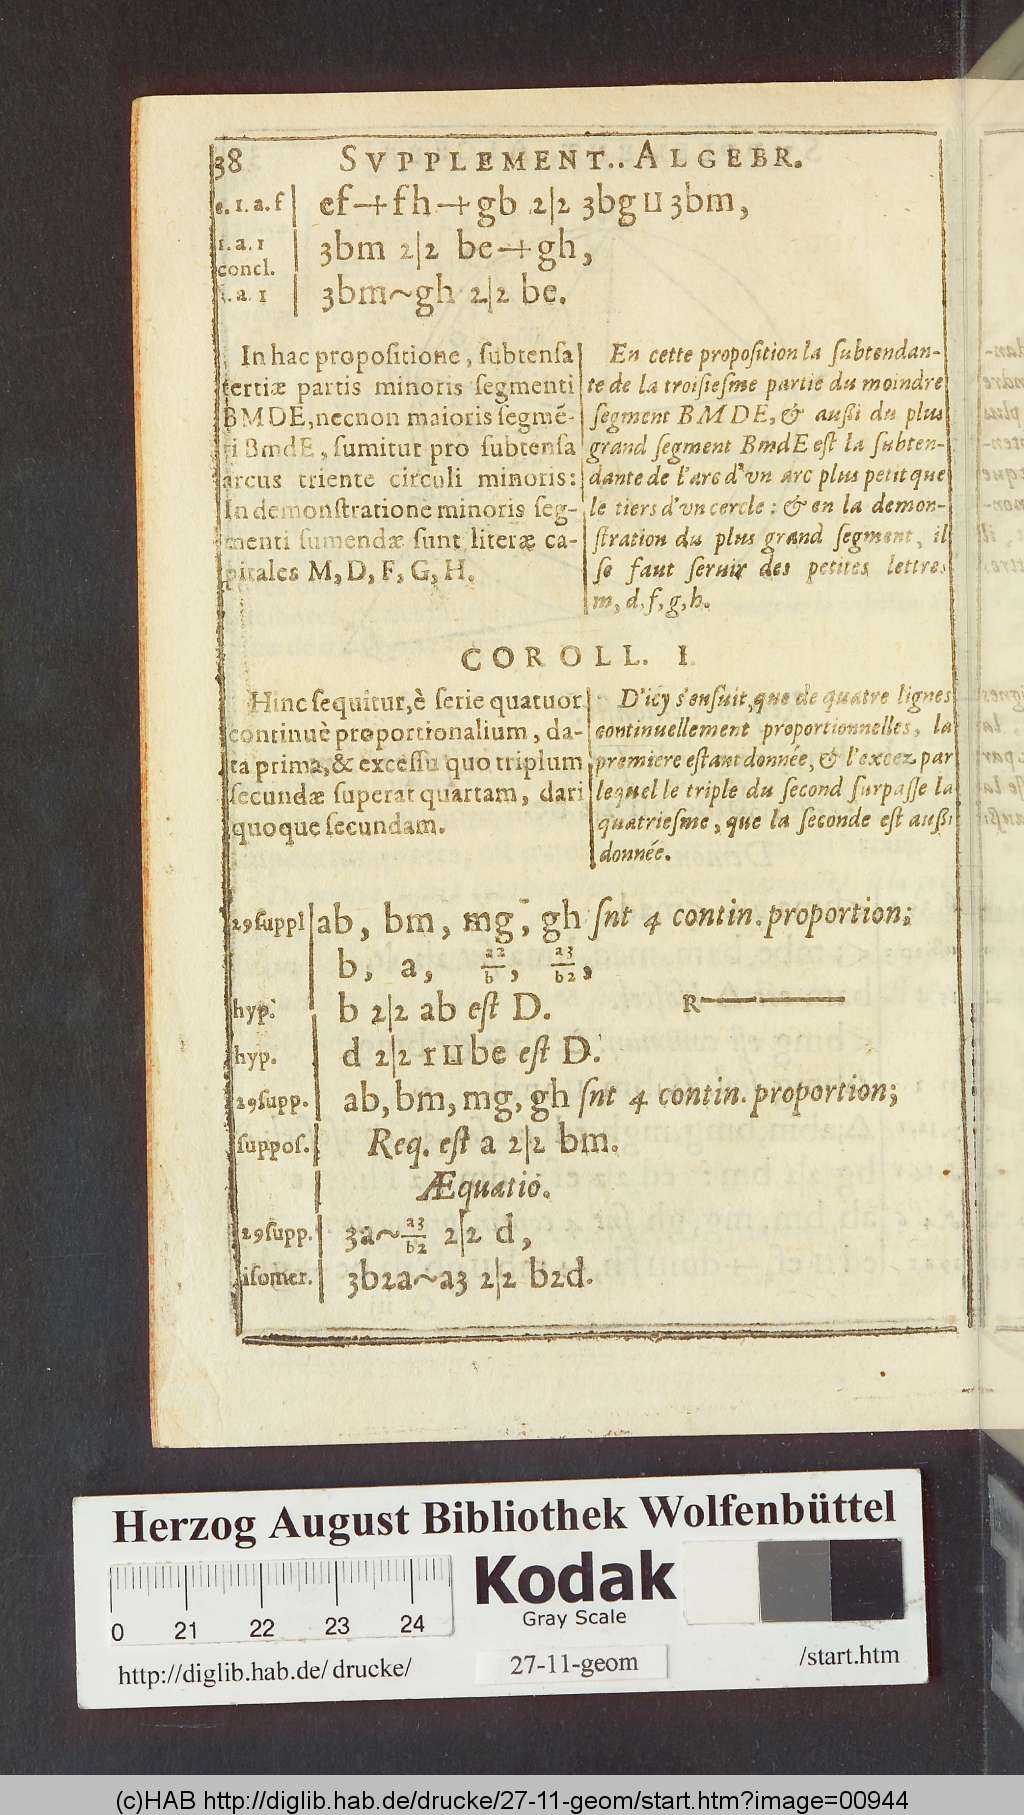 38 SVPPLEMENT.. ALGEBR.
e. 1. a. f | ef-+fh-+gb 2|2 3bg ⊔ 3bm,
1. a. 1 | 3bm 2|2 be-+gh,
concl.
1. a. 1 | 3bm~gh 2|2 be.
In hac propositione, subtensa
tertiæ partis minoris segmenti
BMDE, necnon maioris segmē-
ti BmdE, sumitur pro subtensa
arcus triente circuli minoris:
In demonstratione minoris seg-
menti sumendæ sunt literæ ca-
pitales M, D, F, G, H.
En cette proposition la subtendan-
te de la troisiesme partie du moindre
segment BMDE, & außi du plus
grand segment BmdE est la subten-
dante de l'arc d'vn arc plus petit que
le tiers d'vn cercle : & en la demon-
stration du plus grand segment, il
se faut seruir des petites lettres
m, d, f, g, h.
COROLL. I
Hinc sequitur, è serie quatuor
continuè proportionalium, da-
ta prima, & excessu quo triplum
secundæ superat quartam, dari
quoque secundam.
D'icy s'ensuit, que de quatre lignes
continuellement proportionnelles, la
premiere estant donnée, & l'excez par
lequel le triple du second surpasse la
quatriesme, que la seconde est außi
donnée.
29suppl | ab, bm, mg, gh snt 4 contin. proportion;
b, a, a2/b, a3/b2,
hyp. | b 2|2 ab est D. R
hyp. | d 2|2 r ⊔ be est D.
29supp. | ab, bm, mg, gh snt 4 contin. proportion;
suppos. | Req. est a 2|2 bm.
Æquatio.
29supp. | 3a~a3/b2 2|2 d,
isomer. | 3b2a~a3 2|2 b2d.
Herzog August Bibliothek Wolfenbüttel
Kodak
Gray Scale
0 21 22 23 24
http://diglib.hab.de/ drucke/ 27-11-geom /start.htm
(c)HAB http://diglib.hab.de/drucke/27-11-geom/start.htm?image=00944